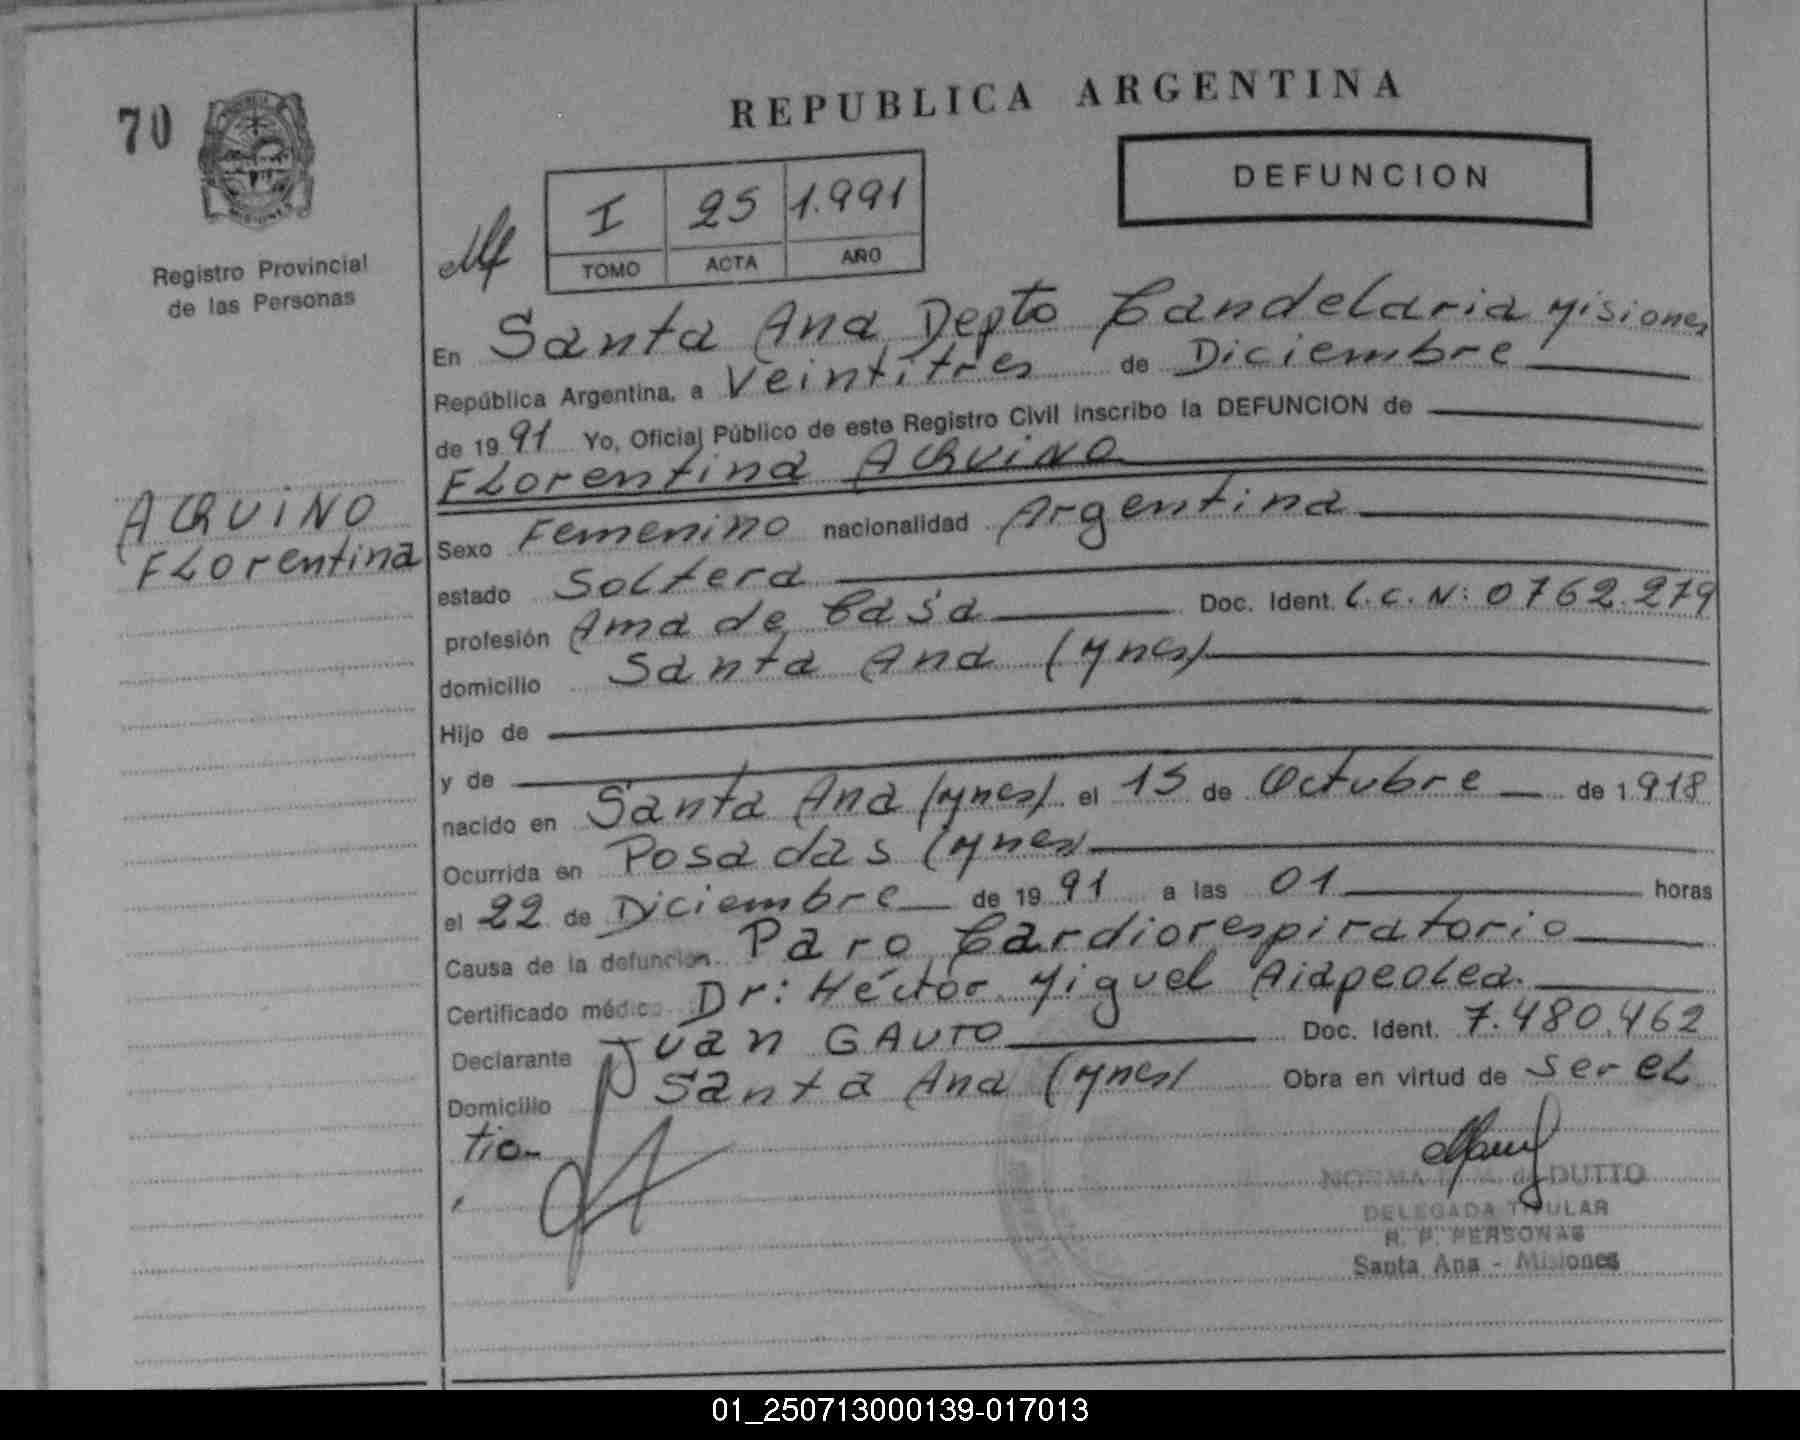 70
REPUBLICA ARGENTINA
DEFUNCION
I 25 1.991
TOMO ACTA AÑO
Registro Provincial
de las Personas
En Santa Ana Depto Candelaria Misiones
República Argentina, a Veintitres de Diciembre
de 19 91 Yo, Oficial Público de este Registro Civil inscribo la DEFUNCION de
Florentina AQUINO
AQUINO
Florentina
Sexo Femenino nacionalidad Argentina
estado Soltera
profesión Ama de Casa Doc. Ident. L.C.N: 0762.279
domicilio Santa Ana (Mnes)
Hijo de
y de
nacido en Santa Ana (Mnes) el 15 de Octubre de 1918
Ocurrida en Posadas (Mnes)
el 22 de Diciembre de 19 91 a las 01 horas
Causa de la defunción Paro Cardiorespiratorio
Certificado médico Dr: Héctor Miguel Aiapeolea.
Declarante Juan GAUTO Doc. Ident. 7.480.462
Domicilio Santa Ana (Mnes) Obra en virtud de ser el
tio-
NORMA de DUTTO
DELEGADA TITULAR
R. P. PERSONAS
Santa Ana - Misiones
01_250713000139-017013